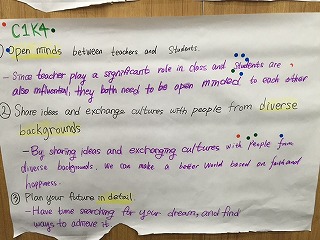 C1K4
① Open minds between teachers and students.
- Since teacher play a significant role in class and students are
also influential, they both need to be open minded to each other
② Share ideas and exchange cultures with people from diverse
backgrounds
- By sharing ideas and exchanging cultures with people from
diverse backgrounds. We can make a better world based on faith and
happiness.
③ Plan your future in detail.
- Have time searching for your dream, and find
ways to achieve it.